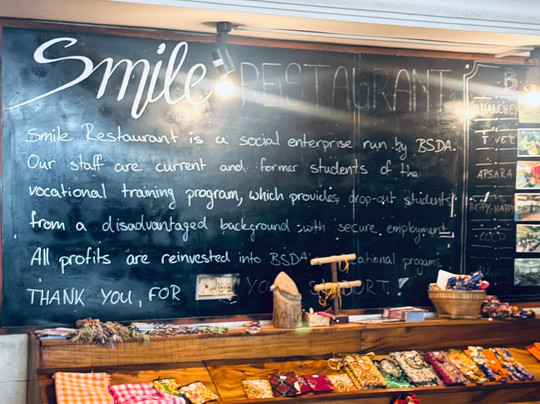 Smile RESTAURANT
Smile Restaurant is a social enterprise run by BSDA.
Our staff are current and former students of the
vocational training program, which provides drop-out students
from a disadvantaged background with secure employment.
All profits are reinvested into BSDA
THANK YOU, FOR
APSARA